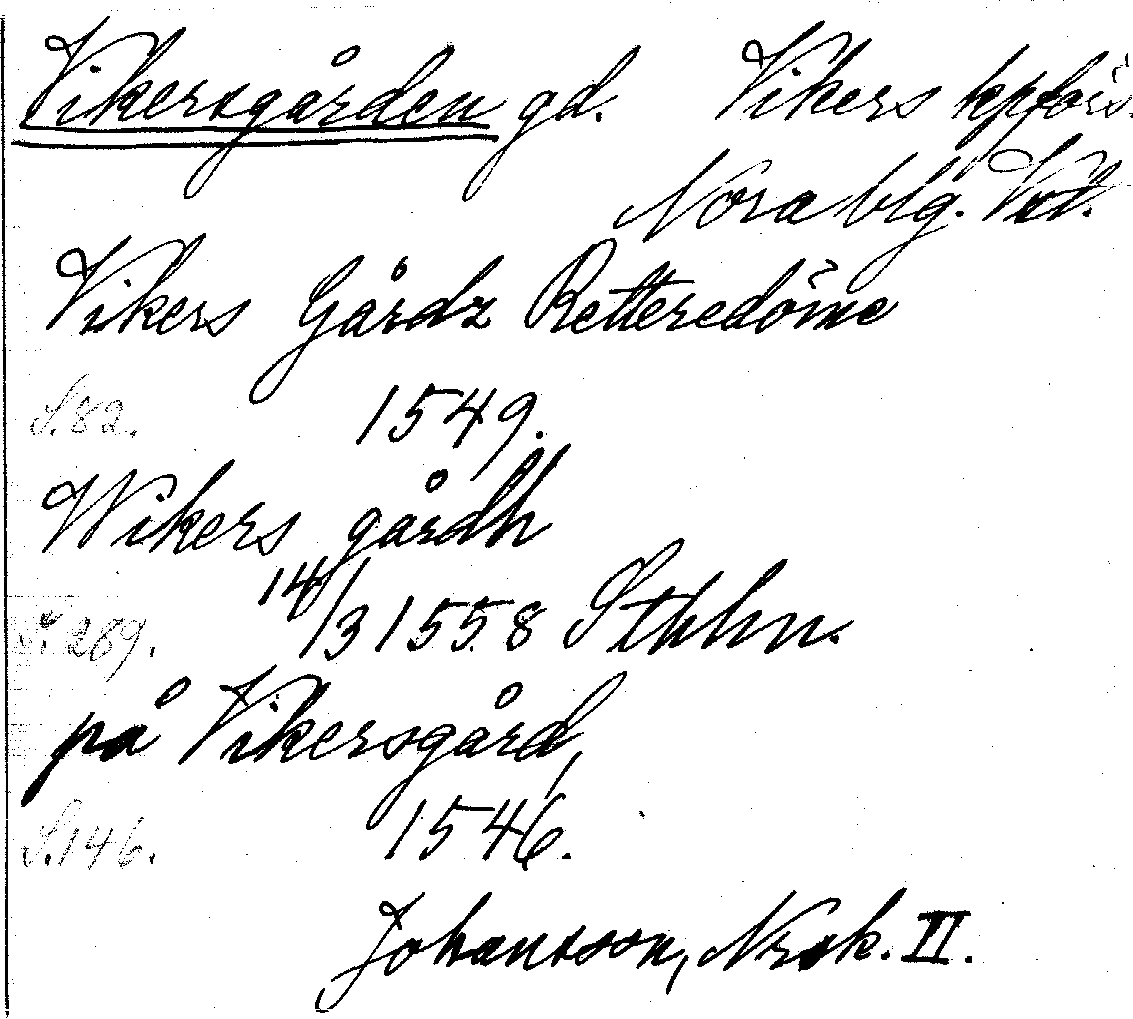 Vikersgården gd. Vikers kpförs.
Nora blg. Vstm.
Vikers Gårdz Retteredöme
S. 82. 1549.
Wikers gårdh
S. 289. 14/3 1558 Sthlm.
på Vikersgård,
S. 146. 1546.
Johansson, Nrsk. II.